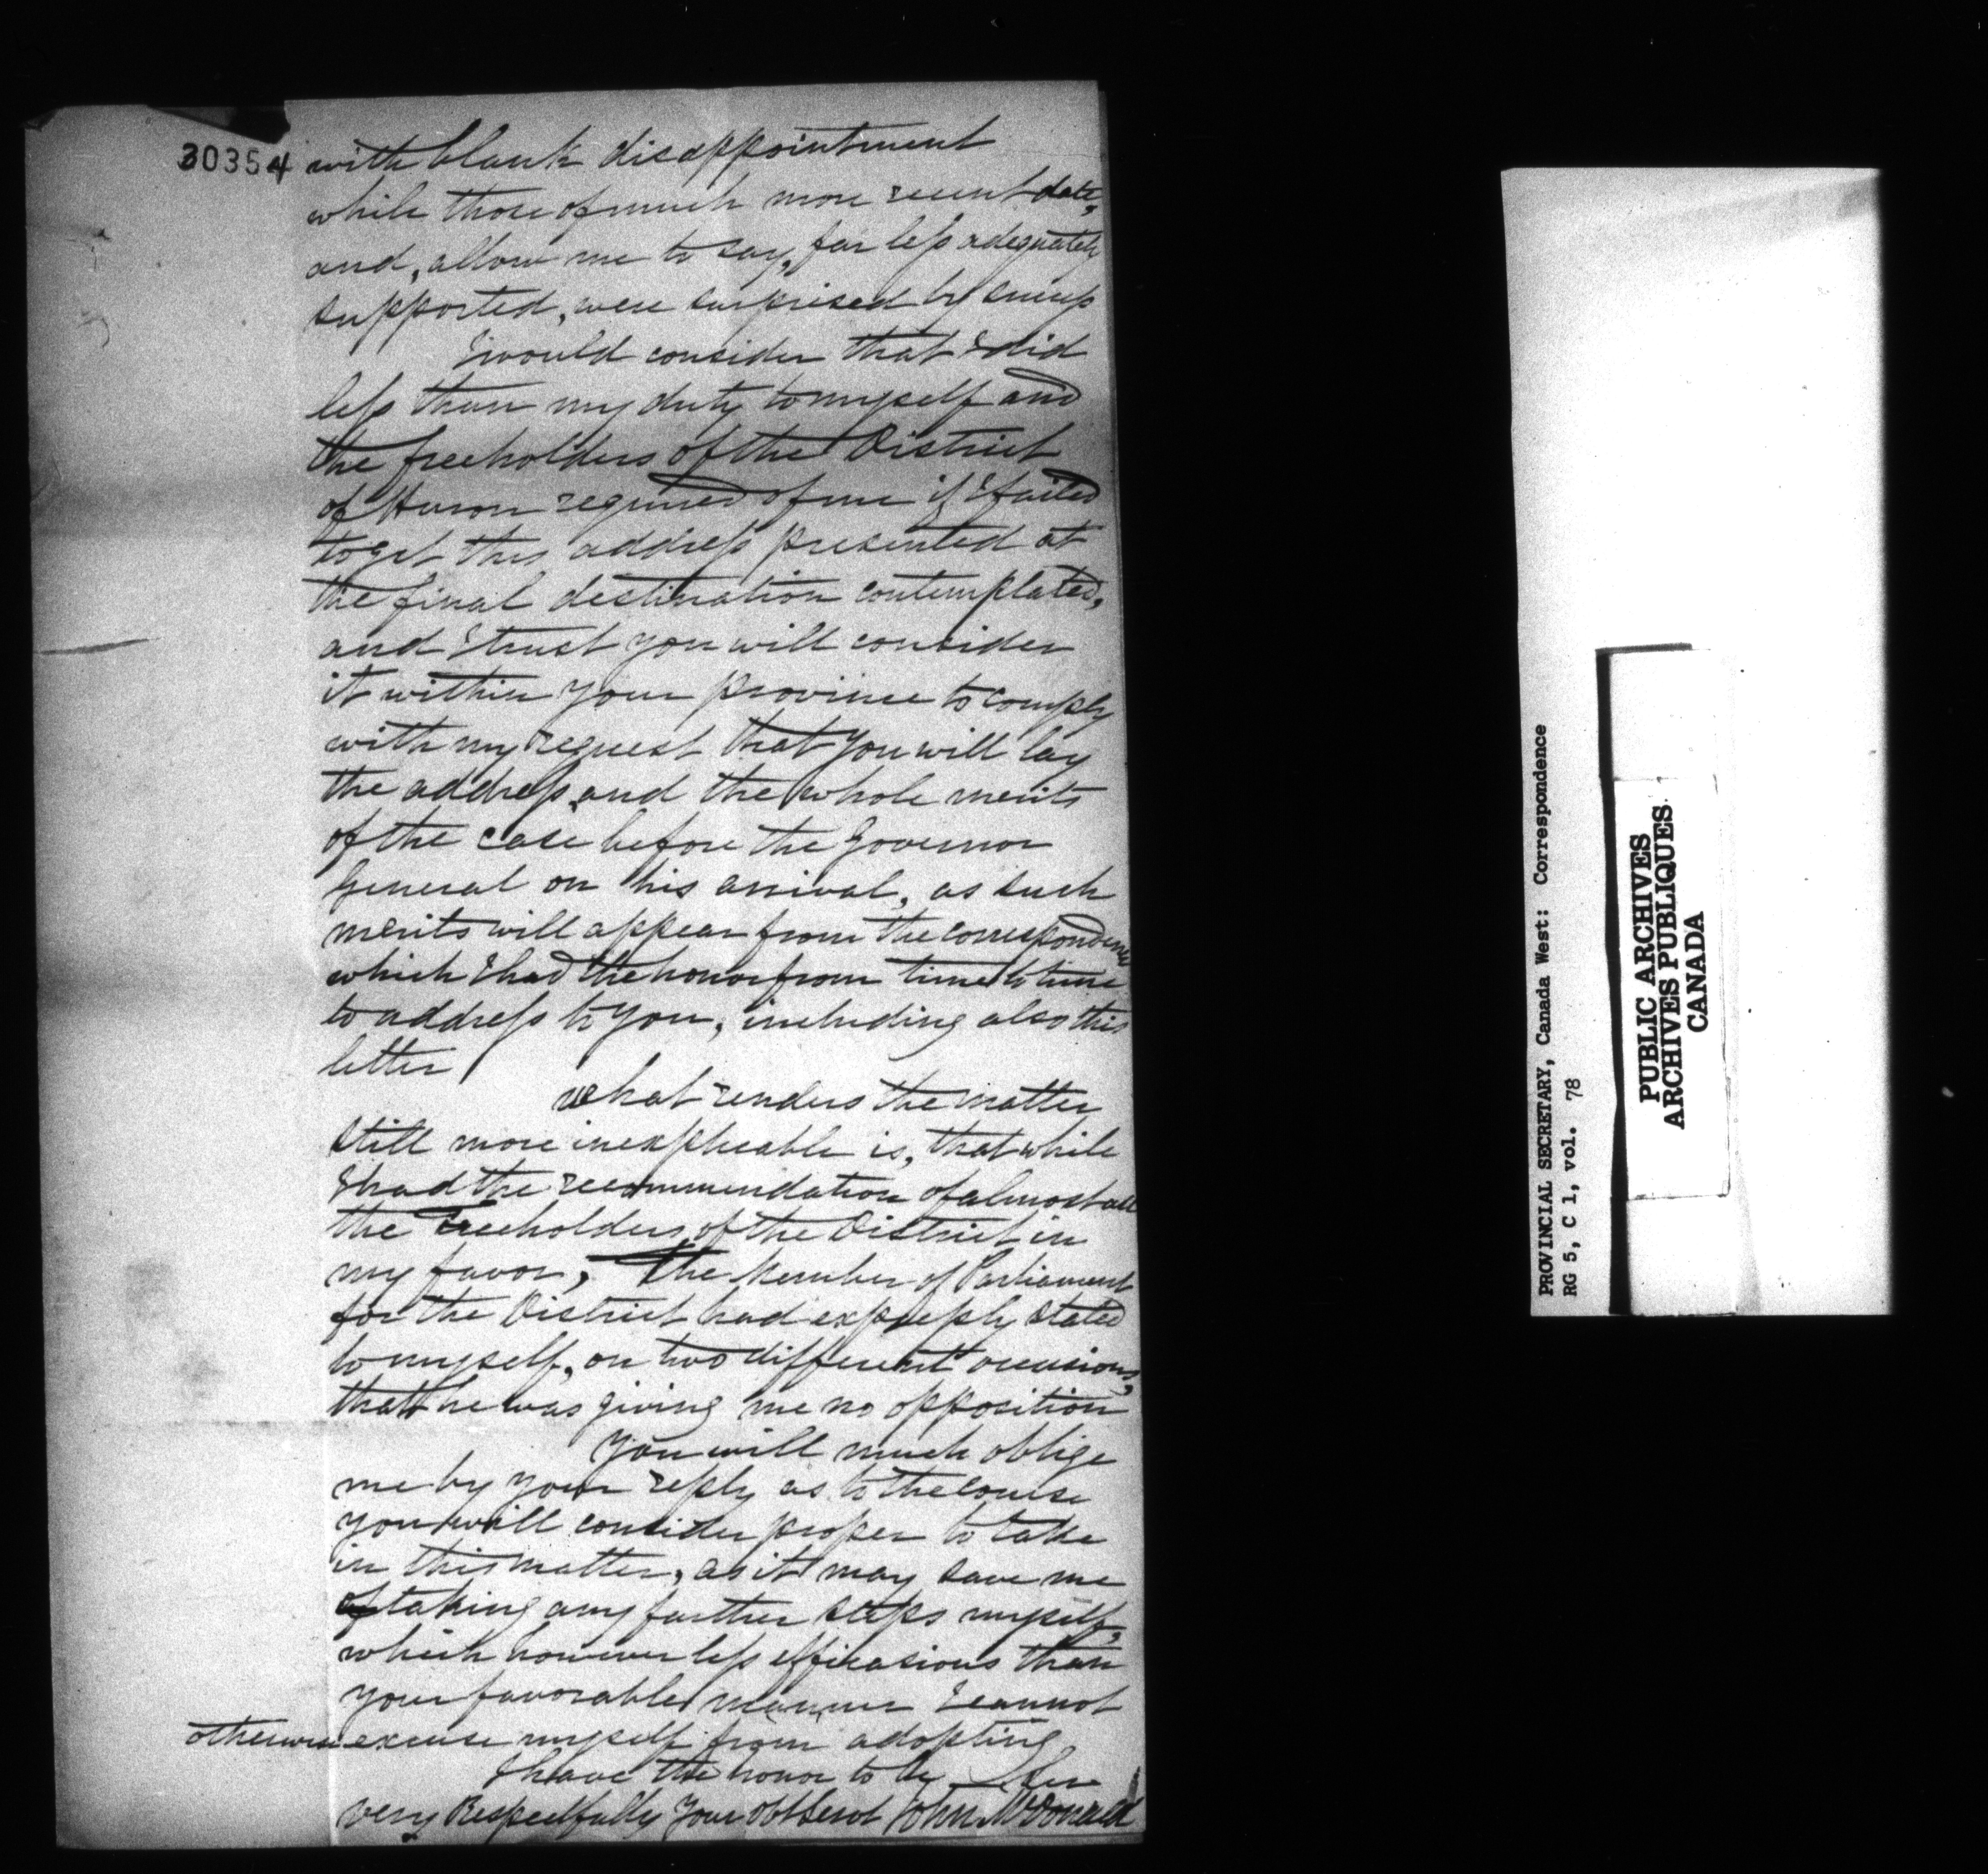 30354
with blank disappointment
while those of much more recent date,
and, allow me to say, far less adequately
supported, were surprised by success
I would consider that I did
less than my duty to myself and
the freeholders of the District
of Huron required of me if I failed
to get this address presented at
the final destination contemplated,
and I trust you will consider
it within your province to comply
with my request that you will lay
the address and the whole merits
of the case before the Governor
General on his arrival, as such
merits will appear from the correspondence
which I had the honor from time to time
to address to you, including also this
letter
What renders the matter
still more inexplicable is, that while
I had the recommendation of almost all
the Freeholders of the District in
my favor, the Member of Parliament
for the District had expressly stated
to myself, on two different occasions,
that he was giving me no opposition
You will much oblige
me by your reply as to the course
you will consider proper to take
in this matter, as it may save me
of taking any further steps myself,
which however less efficasious than
your favorable manner I cannot
otherwise excuse myself from adopting
I have the honor to be Sir
very Respectfully Your obt Servt John McDonald
PROVINCIAL SECRETARY, Canada West: Correspondence
RG 5, C 1, vol. 78
PUBLIC ARCHIVES
ARCHIVES PUBLIQUES
CANADA